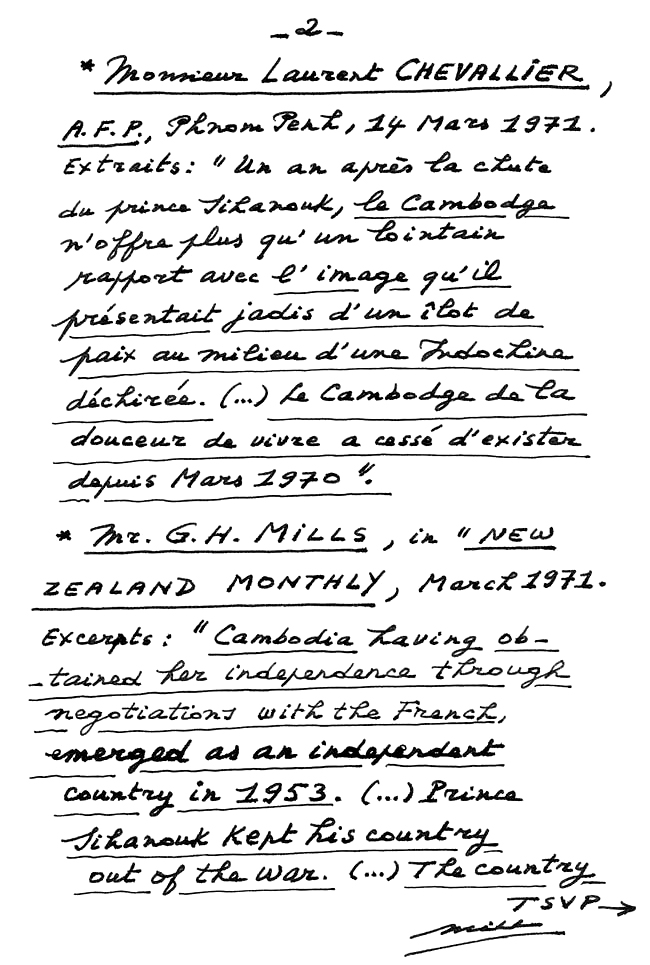 -2-
* Monsieur Laurent CHEVALLIER,
A.F.P., Phnom Penh, 14 Mars 1971.
Extraits: "Un an après la chute
du prince Sihanouk, le Cambodge
n'offre plus qu'un lointain
rapport avec l'image qu'il
présentait jadis d'un îlot de
paix au milieu d'une Indochine
déchirée. (...) Le Cambodge de la
douceur de vivre a cessé d'exister
depuis Mars 1970".
* Mr. G.H. MILLS, in "NEW
ZEALAND MONTHLY, March 1971.
Excerpts: "Cambodia having ob-
-tained her independence through
negotiations with the French,
emerged as an independent
country in 1953. (...) Prince
Sihanouk Kept his country
out of the war. (...) The country
TSVP→